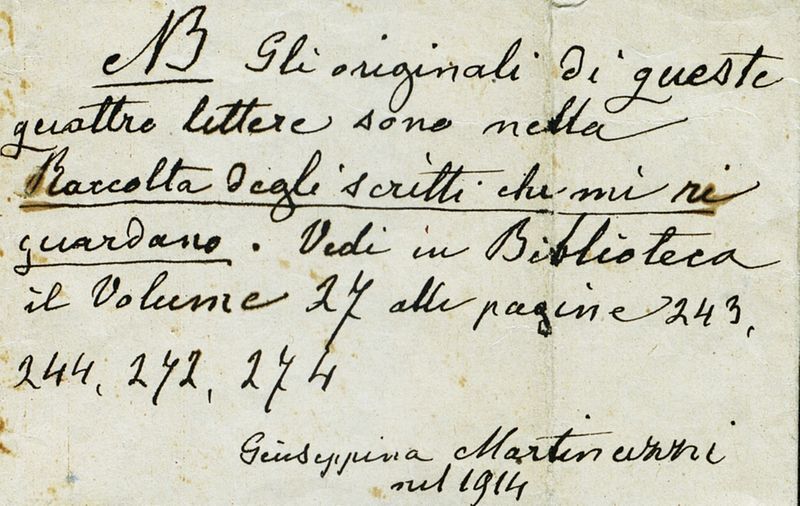 NB Gli originali di queste
quattro lettere sono nella
Raccolta degli scritti che mi ri
guardano. Vedi in Biblioteca
il Volume 27 alle pagine 243,
244, 272, 274
Giuseppina Martinuzzi
nel 1914